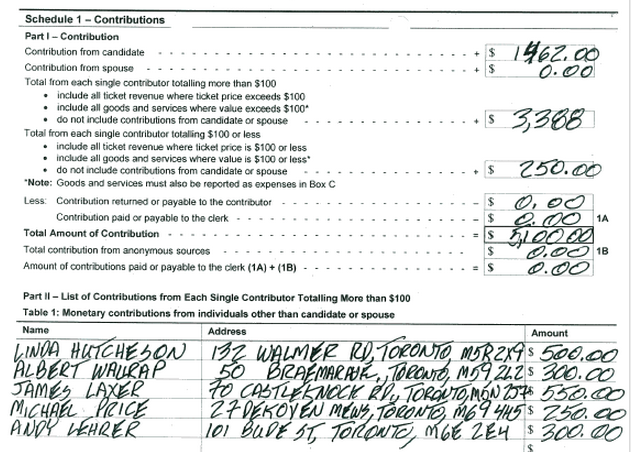 Schedule 1 – Contributions
Part I – Contribution
Contribution from candidate + $ 1462.00
Contribution from spouse + $ 0.00
Total from each single contributor totalling more than $100
• include all ticket revenue where ticket price exceeds $100
• include all goods and services where value exceeds $100*
• do not include contributions from candidate or spouse + $ 3,388
Total from each single contributor totalling $100 or less
• include all ticket revenue where ticket price is $100 or less
• include all goods and services where value is $100 or less*
• do not include contributions from candidate or spouse + $ 250.00
*Note: Goods and services must also be reported as expenses in Box C
Less: Contribution returned or payable to the contributor – $ 0.00
Contribution paid or payable to the clerk – $ 0.00 1A
Total Amount of Contribution = $ 5,100.00
Total contribution from anonymous sources $ 0.00 1B
Amount of contributions paid or payable to the clerk (1A) + (1B) = $ 0.00
Part II – List of Contributions from Each Single Contributor Totalling More than $100
Table 1: Monetary contributions from individuals other than candidate or spouse
Name Address Amount
LINDA HUTCHESON 132 WALMER RD, TORONTO M5R 2X9 $ 500.00
ALBERT 50 TORONTO, $ 300.00
JAMES LAXER 70 CASTLEKNOCK RD, TORONTO, $ 550.00
MICHAEL PRICE 27 DEKOVEN MEWS, TORONTO, $ 250.00
ANDY LEHRER 101 BUDE ST, TORONTO, M6E 2E4 $ 300.00
$